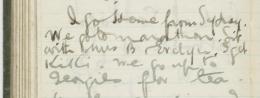 I go home from Sydney.
We go to marathon. Sit
with Mrs B & Evelyn. I get
Kitti. We go up to
Georgies for tea.